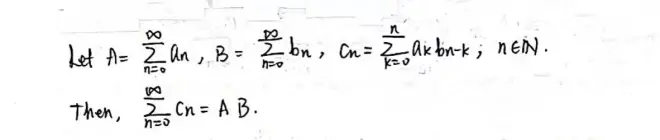 Let A = ∑_{n=0}^{∞} an , B = ∑_{n=0}^{∞} bn , Cn = ∑_{k=0}^{n} ak bn-k ; n∈ℕ.
Then, ∑_{n=0}^{∞} Cn = A B.